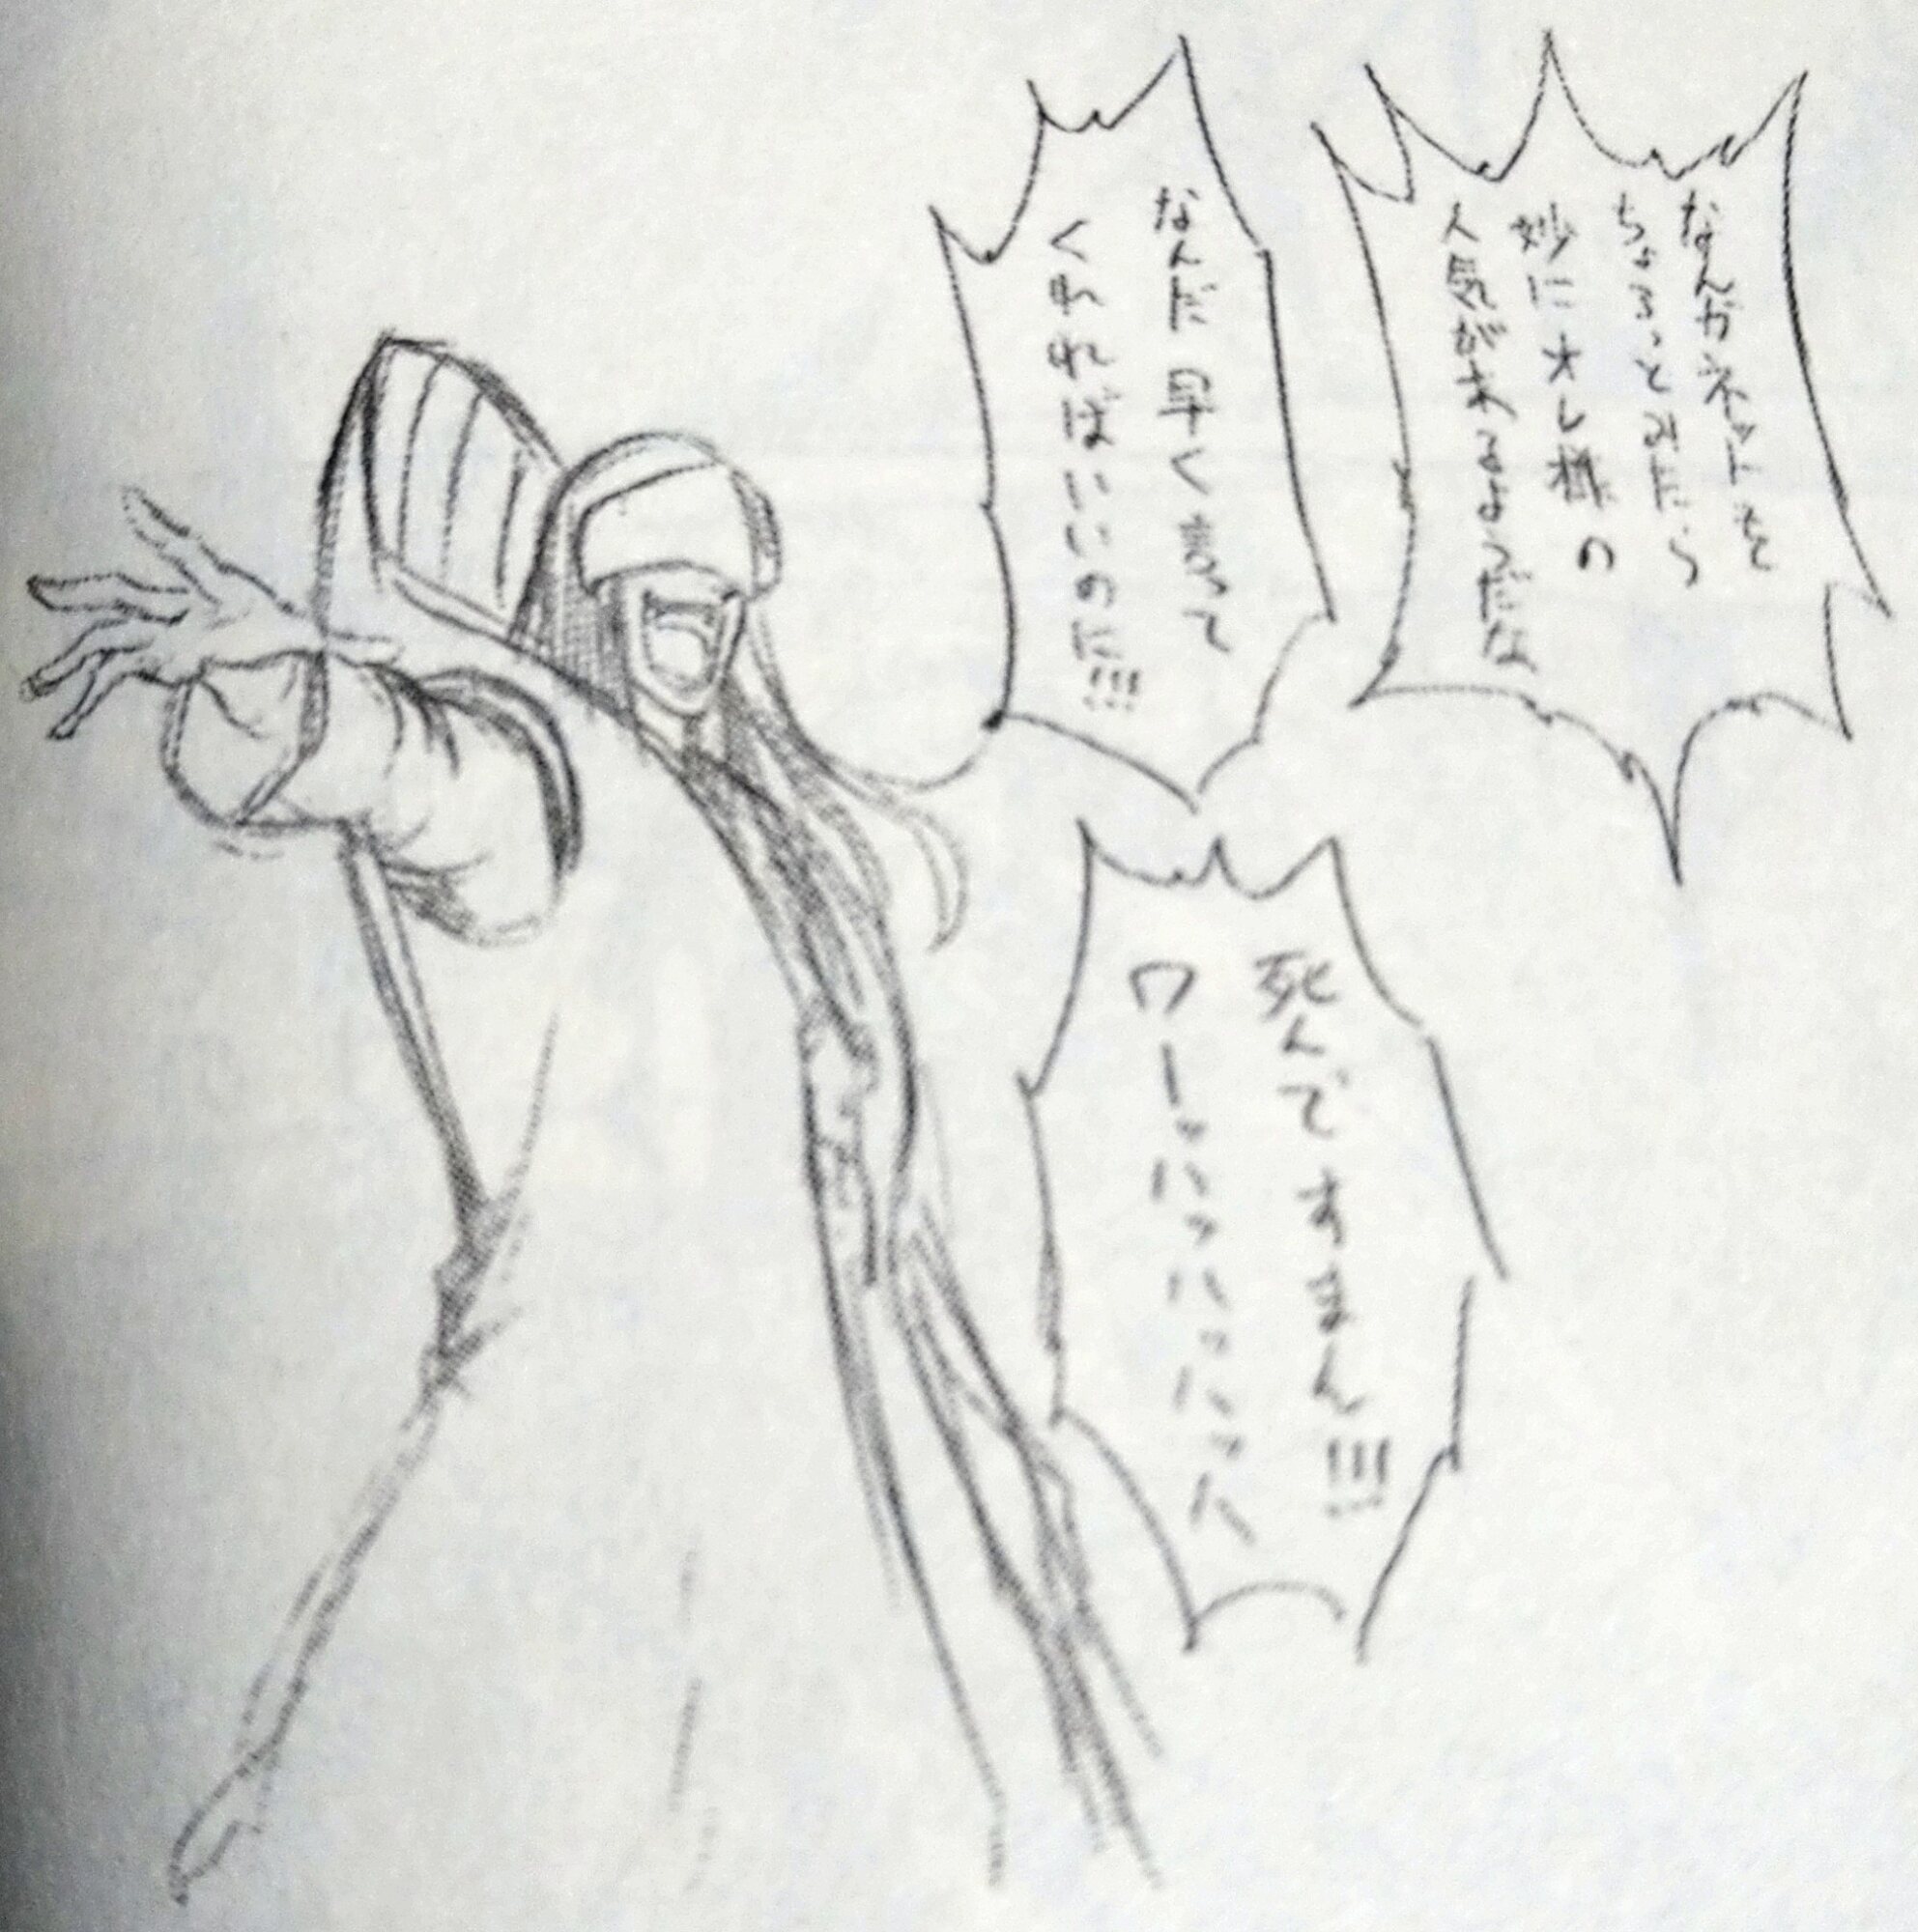 なんかネットを
ちょろっとみたら
妙にオレ様の
人気があるようだな
なんだ 早く言って
くれればいいのに!!!
死んですまん!!!
ワーッハッハッハッハッハ